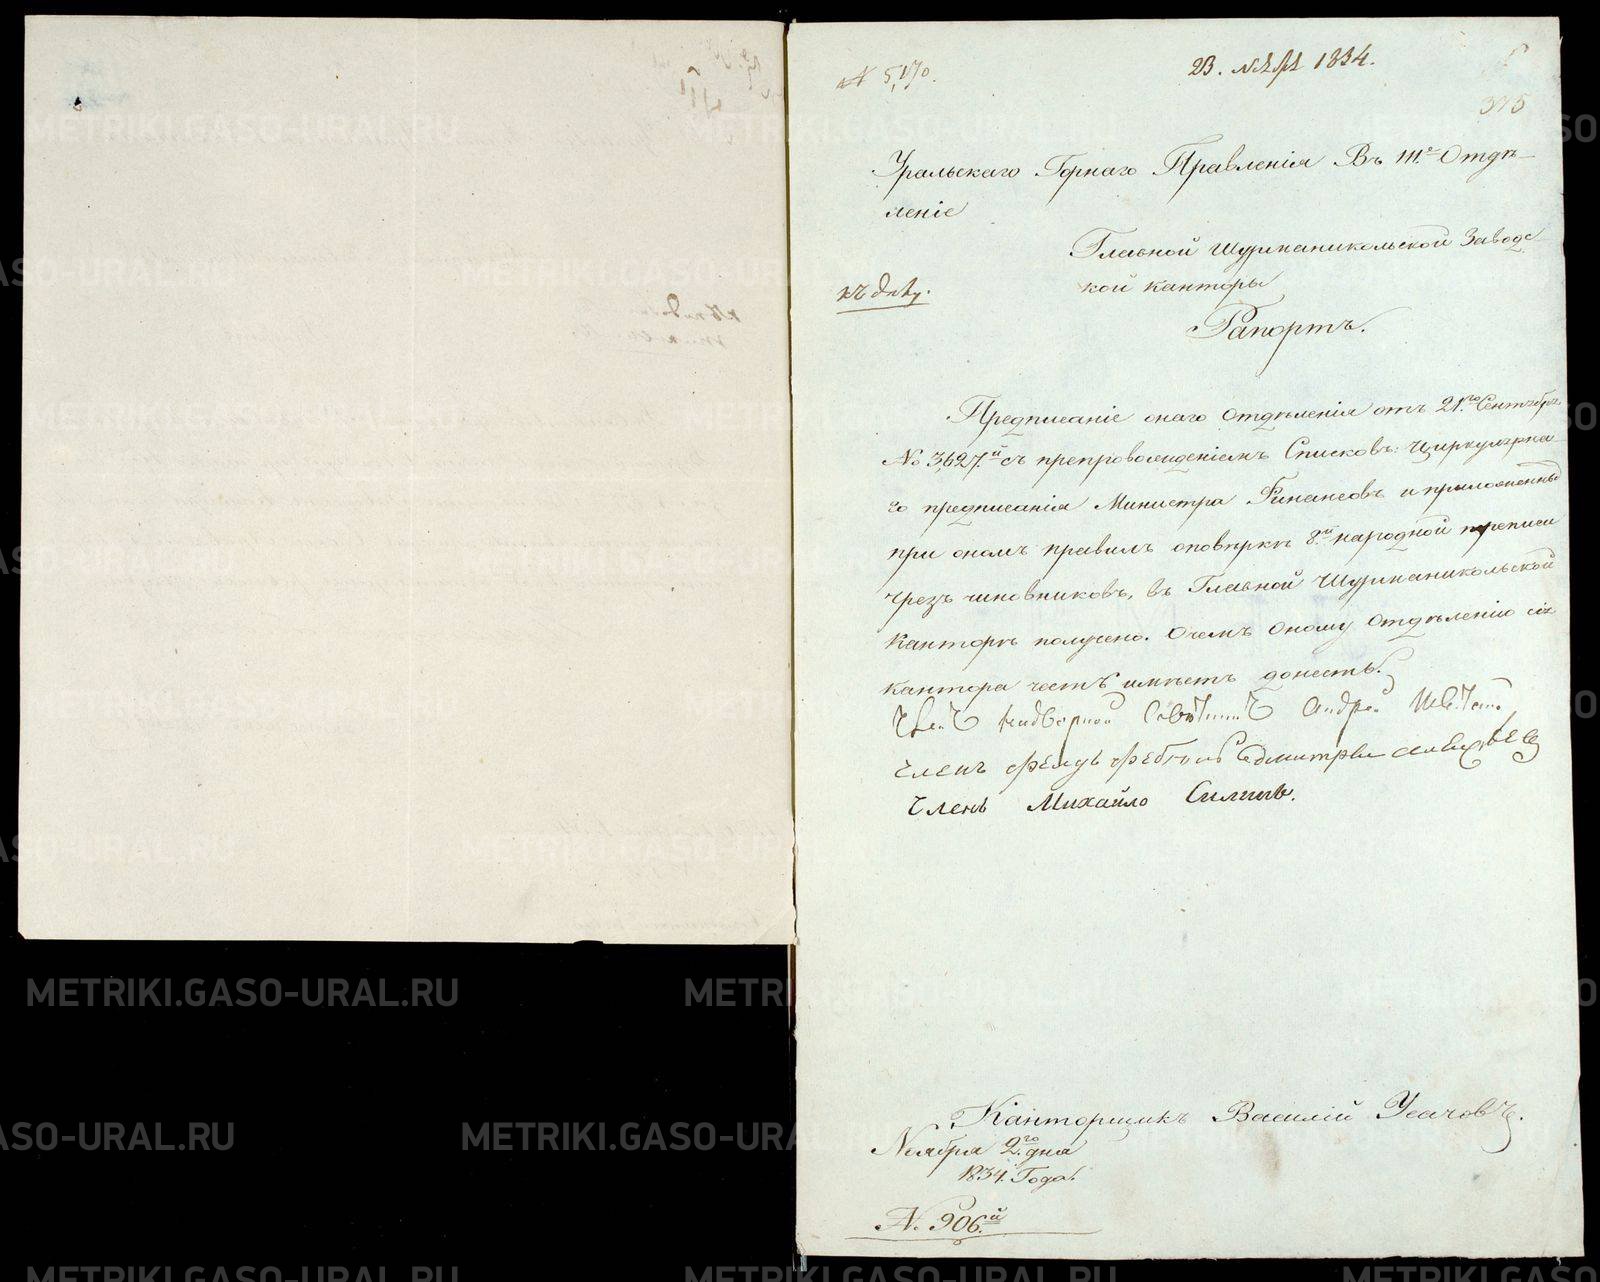 № 5,170.
23. 1834.
375
Уральскаго Горнаго Правленія Въ III.е Отдѣ-
леніе
Главной Шурманикольской Заводс
кой канторы
къ дѣлу.
Рапортъ.
Предписаніе онаго Отдѣленія отъ 21.го Сентебря
№ 3,627.й съ препровожденіемъ Списковъ: Циркулярна-
го предписанія Министра Финансовъ и приложенныхъ
при ономъ правилъ оповѣркѣ 8.й народной переписи
чрезъ чиновниковъ, въ Главной Шурманикольской
Канторѣ получено. Очемъ Оному Отдѣленію сія
кантора честь имѣетъ донесть.
Членъ надворной Совѣтникъ Андрей
Членъ Дмитрей
Членъ Михайло
Канторщикъ Василій Усачовъ.
Ноября 2.го дня
1834. Года.
№. 906.й
METRIKI.GASO-URAL.RU